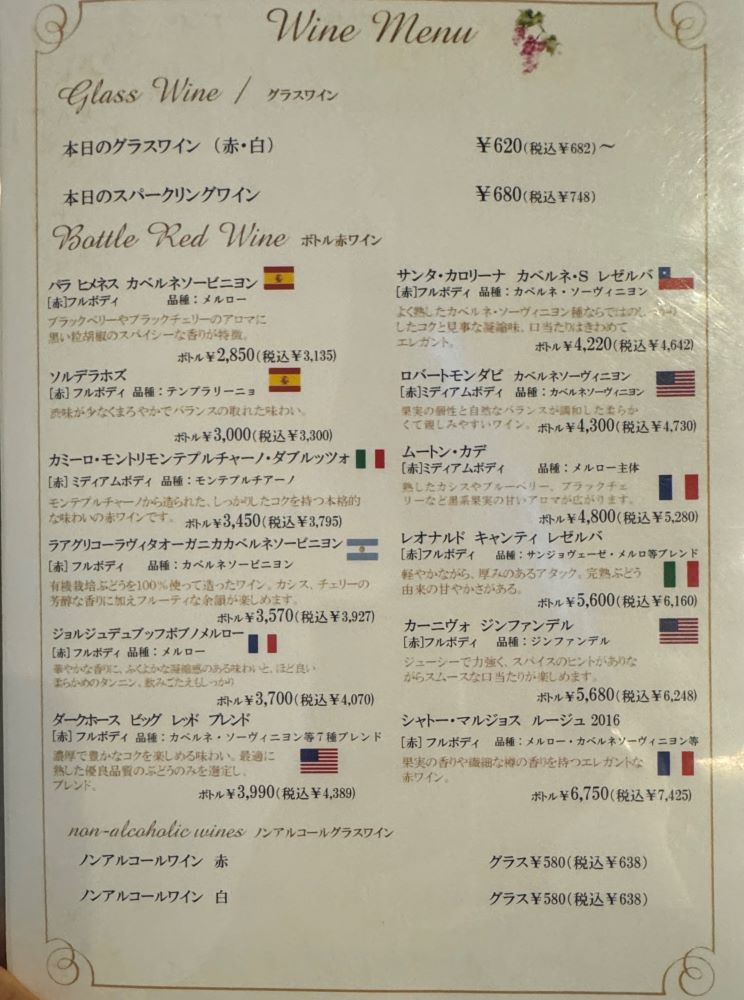 Wine Menu
Glass Wine / グラスワイン
本日のグラスワイン （赤・白） ￥620(税込￥682)～
本日のスパークリングワイン ￥680(税込￥748)
Bottle Red Wine ボトル赤ワイン
パラ ヒメネス カベルネソービニヨン
[赤]フルボディ 品種：メルロー
ブラックベリーやブラックチェリーのアロマに
黒い粒胡椒のスパイシーな香りが特徴。
ボトル￥2,850(税込￥3,135)
ソルデラホズ
[赤]フルボディ 品種：テンプラリーニョ
渋味が少なくまろやかでバランスの取れた味わい。
ボトル￥3,000(税込￥3,300)
カミーロ・モントリモンテプルチャーノ・ダブルッツォ
[赤]ミディアムボディ 品種：モンテプルチアーノ
モンテプルチャーノから造られた、しっかりしたコクを持つ本格的
な味わいの赤ワインです。
ボトル￥3,450(税込￥3,795)
ラアグリコーラヴィタオーガニカカベルネソービニヨン
[赤]フルボディ 品種：カベルネソービニヨン
有機栽培ぶどうを100%使って造ったワイン。カシス、チェリーの
芳醇な香りに加えフルーティな余韻が楽しめます。
ボトル￥3,570(税込￥3,927)
ジョルジュデュブッフボブノメルロー
[赤]フルボディ 品種：メルロー
華やかな香りに、ふくよかな凝縮感のある味わいと、ほど良い
柔らかめのタンニン、飲みごたえもしっかり
ボトル￥3,700(税込￥4,070)
ダークホース ビッグ レッド ブレンド
[赤]フルボディ 品種：カベルネ・ソーヴィニヨン等７種ブレンド
濃厚で豊かなコクを楽しめる味わい。最適に
熟した優良品質のぶどうのみを選定し、
ブレンド。
ボトル￥3,990(税込￥4,389)
サンタ・カロリーナ カベルネ・S レゼルバ
[赤]フルボディ 品種：カベルネ・ソーヴィニヨン
よく熟したカベルネ・ソーヴィニヨン種ならではのしっかり
したコクと見事な凝縮味。口当たりはきわめて
エレガント。
ボトル￥4,220(税込￥4,642)
ロバートモンダビ カベルネソーヴィニヨン
[赤]ミディアムボディ 品種：カベルネソーヴィニヨン
果実の個性と自然なバランスが調和した柔らか
くて親しみやすいワイン。
ボトル￥4,300(税込￥4,730)
ムートン・カデ
[赤]ミディアムボディ 品種：メルロー主体
熟したカシスやブルーベリー、ブラックチェ
リーなど黒系果実の甘いアロマが広がります。
ボトル￥4,800(税込￥5,280)
レオナルド キャンティ レゼルバ
[赤]フルボディ 品種：サンジョヴェーゼ・メルロ等ブレンド
軽やかながら、厚みのあるアタック。完熟ぶどう
由来の甘やかさがある。
ボトル￥5,600(税込￥6,160)
カーニヴォ ジンファンデル
[赤]フルボディ 品種：ジンファンデル
ジューシーで力強く、スパイスのヒントがありな
がらスムースな口当たりが楽しめます。
ボトル￥5,680(税込￥6,248)
シャトー・マルジョス ルージュ 2016
[赤]フルボディ 品種：メルロー・カベルネソーヴィニヨン等
果実の香りや繊細な樽の香りを持つエレガントな
赤ワイン。
ボトル￥6,750(税込￥7,425)
non-alcoholic wines ノンアルコールグラスワイン
ノンアルコールワイン 赤 グラス￥580(税込￥638)
ノンアルコールワイン 白 グラス￥580(税込￥638)